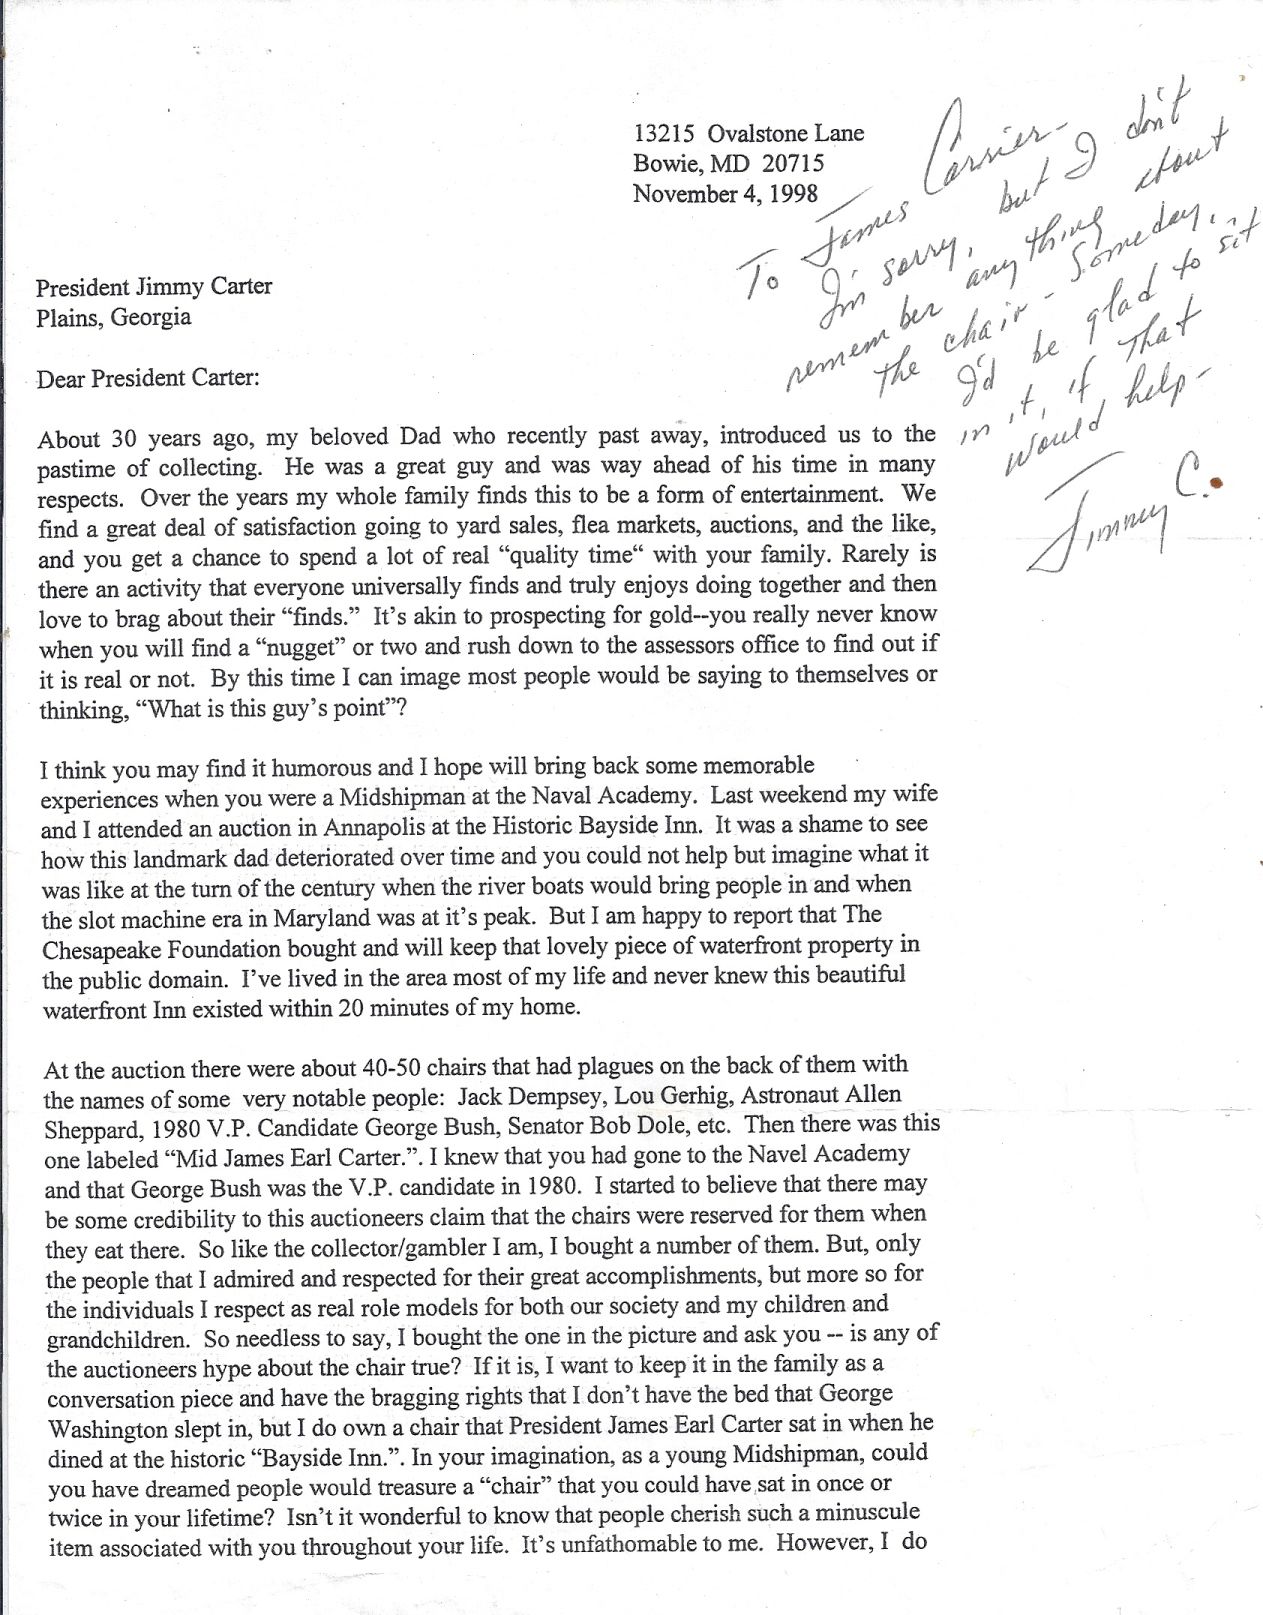 13215 Ovalstone Lane
Bowie, MD 20715
November 4, 1998
To James Carrier-
I'm sorry, but I don't
remember anything about
the chair - Someday,
I'd be glad to sit
in it, if that
would help-
Jimmy C.
President Jimmy Carter
Plains, Georgia
Dear President Carter:
About 30 years ago, my beloved Dad who recently past away, introduced us to the
pastime of collecting. He was a great guy and was way ahead of his time in many
respects. Over the years my whole family finds this to be a form of entertainment. We
find a great deal of satisfaction going to yard sales, flea markets, auctions, and the like,
and you get a chance to spend a lot of real “quality time“ with your family. Rarely is
there an activity that everyone universally finds and truly enjoys doing together and then
love to brag about their “finds.” It’s akin to prospecting for gold--you really never know
when you will find a “nugget” or two and rush down to the assessors office to find out if
it is real or not. By this time I can image most people would be saying to themselves or
thinking, “What is this guy’s point”?
I think you may find it humorous and I hope will bring back some memorable
experiences when you were a Midshipman at the Naval Academy. Last weekend my wife
and I attended an auction in Annapolis at the Historic Bayside Inn. It was a shame to see
how this landmark dad deteriorated over time and you could not help but imagine what it
was like at the turn of the century when the river boats would bring people in and when
the slot machine era in Maryland was at it’s peak. But I am happy to report that The
Chesapeake Foundation bought and will keep that lovely piece of waterfront property in
the public domain. I’ve lived in the area most of my life and never knew this beautiful
waterfront Inn existed within 20 minutes of my home.
At the auction there were about 40-50 chairs that had plagues on the back of them with
the names of some very notable people: Jack Dempsey, Lou Gerhig, Astronaut Allen
Sheppard, 1980 V.P. Candidate George Bush, Senator Bob Dole, etc. Then there was this
one labeled “Mid James Earl Carter.”. I knew that you had gone to the Navel Academy
and that George Bush was the V.P. candidate in 1980. I started to believe that there may
be some credibility to this auctioneers claim that the chairs were reserved for them when
they eat there. So like the collector/gambler I am, I bought a number of them. But, only
the people that I admired and respected for their great accomplishments, but more so for
the individuals I respect as real role models for both our society and my children and
grandchildren. So needless to say, I bought the one in the picture and ask you -- is any of
the auctioneers hype about the chair true? If it is, I want to keep it in the family as a
conversation piece and have the bragging rights that I don’t have the bed that George
Washington slept in, but I do own a chair that President James Earl Carter sat in when he
dined at the historic “Bayside Inn.”. In your imagination, as a young Midshipman, could
you have dreamed people would treasure a “chair” that you could have sat in once or
twice in your lifetime? Isn’t it wonderful to know that people cherish such a minuscule
item associated with you throughout your life. It’s unfathomable to me. However, I do